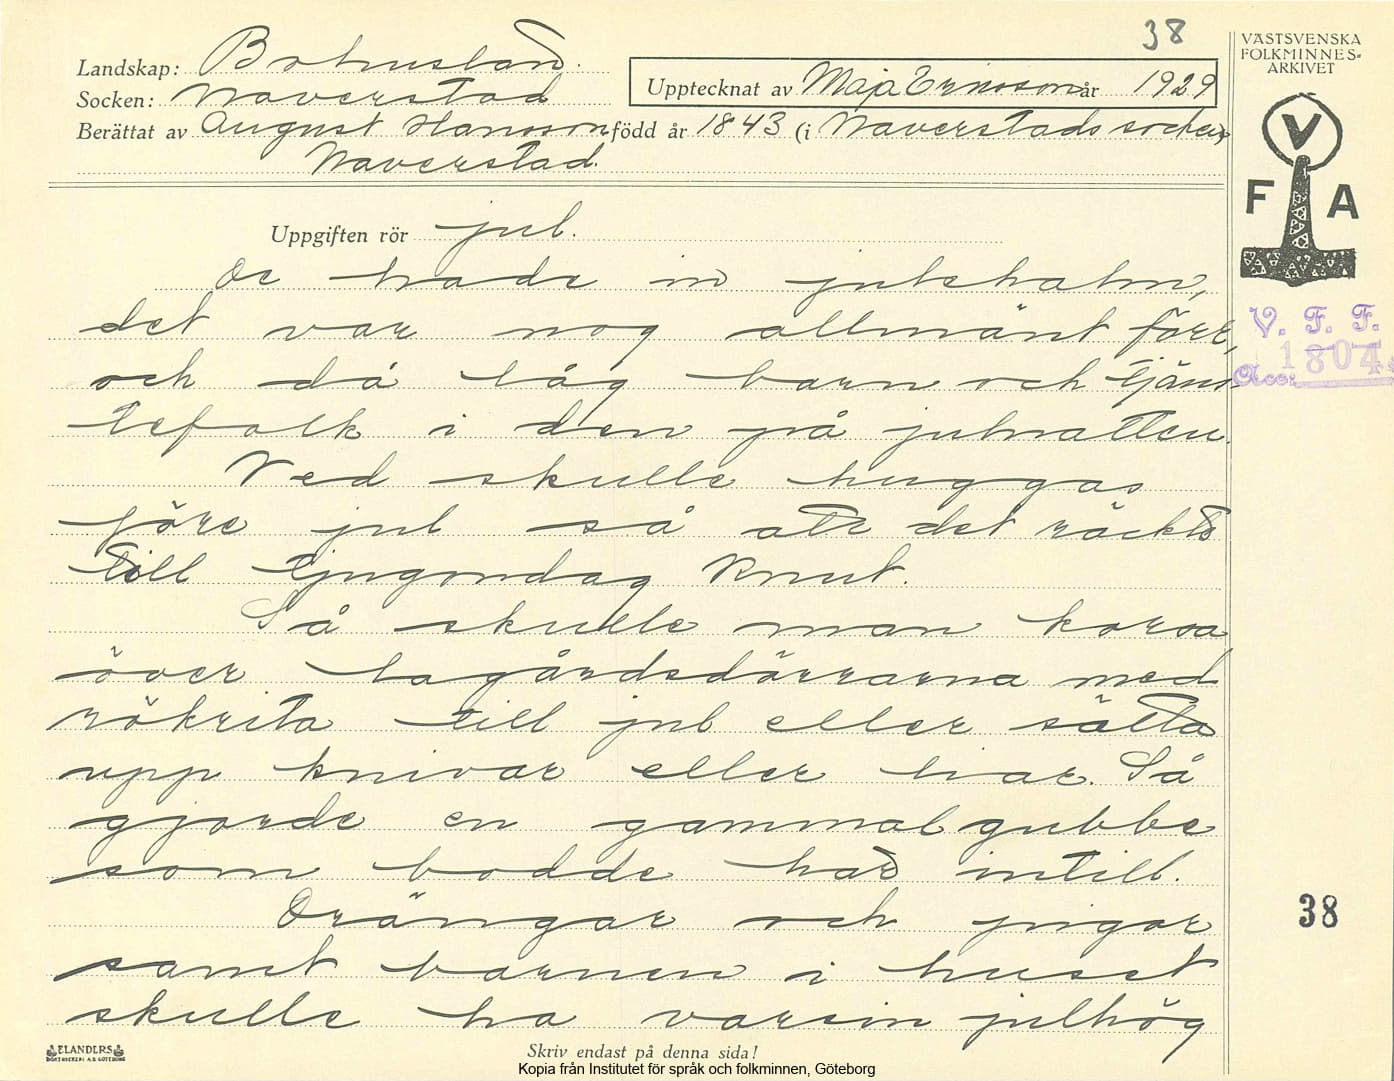 38
VÄSTSVENSKA
FOLKMINNES-
ARKIVET
Landskap: Bohuslän.
Socken: Naverstad
Upptecknat av Maja Ericsson år 1929
Berättat av August Hansson född år 1843 (i Naverstads socken,
Naverstad.
V
F A
Uppgiften rör jul.
De hade in julehalm,
det var nog allmänt förr,
och då låg barn och tjäns-
tefolk i den på julnatten.
V. F. F.
Acc: 1804
Ved skulle huggas
före jul så att det räckte
till tjugondag Knut.
Så skulle man korsa
över lagårdsdörrarna med
rökrita till jul eller sätta
upp knivar eller liar. Så
gjorde en gammal gubbe
som bodde här intill.
38
Drängar och pigor
samt barnen i huset
skulle ha varsin julhög
ELANDERS
BOKTRYCKERI A.B. GÖTEBORG
Skriv endast på denna sida!
Kopia från Institutet för språk och folkminnen, Göteborg